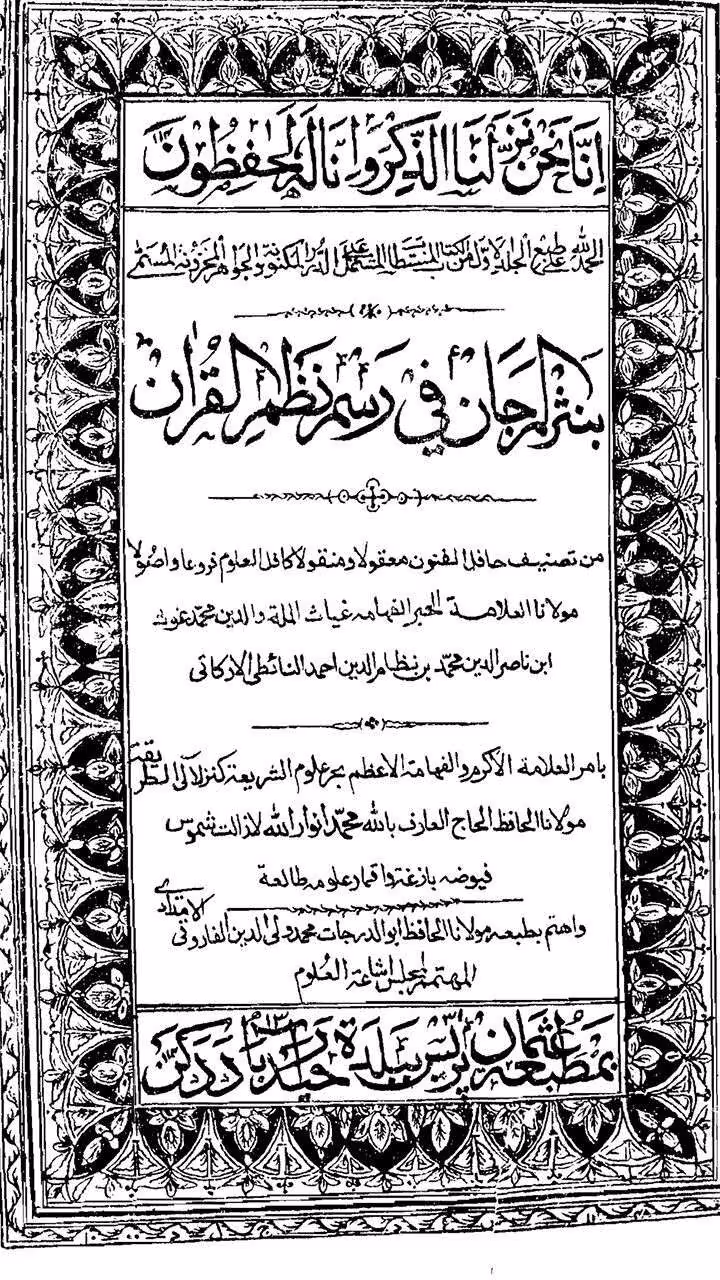 انا نحن نزلنا الذكر وانا له لحفظون
الحمد لله على طبع الجلد الاول من الكتاب المستطاب المشتمل على الدرر المكنونة والجواهر المخزونة المسمى
بنثر المرجان في رسم نظم القران
من تصنيف حافل الفنون معقولا ومنقولا كافل العلوم فروعا واصولا
مولانا العلامة الحبر الفهامه غياث الملة والدين محمد غوث
ابن ناصر الدين محمد بن نظام الدين احمد النائطي الاركاتي
بامر العلامة الاكرم والفهامة الاعظم بحر علوم الشريعة كنز لآلى الطريقة
مولانا الحافظ الحاج العارف بالله محمد أنوار الله لازالت شموس
فيوضه بازغة واقمار علومه طالعة
واهتم بطبعه مولانا الحافظ ابو الدرجات محمد ولي الدين الفاروقي
المهتم لمجلس اشاعة العلوم
بمطبعة عثمان پريس ببلدة حيدرباد دكن